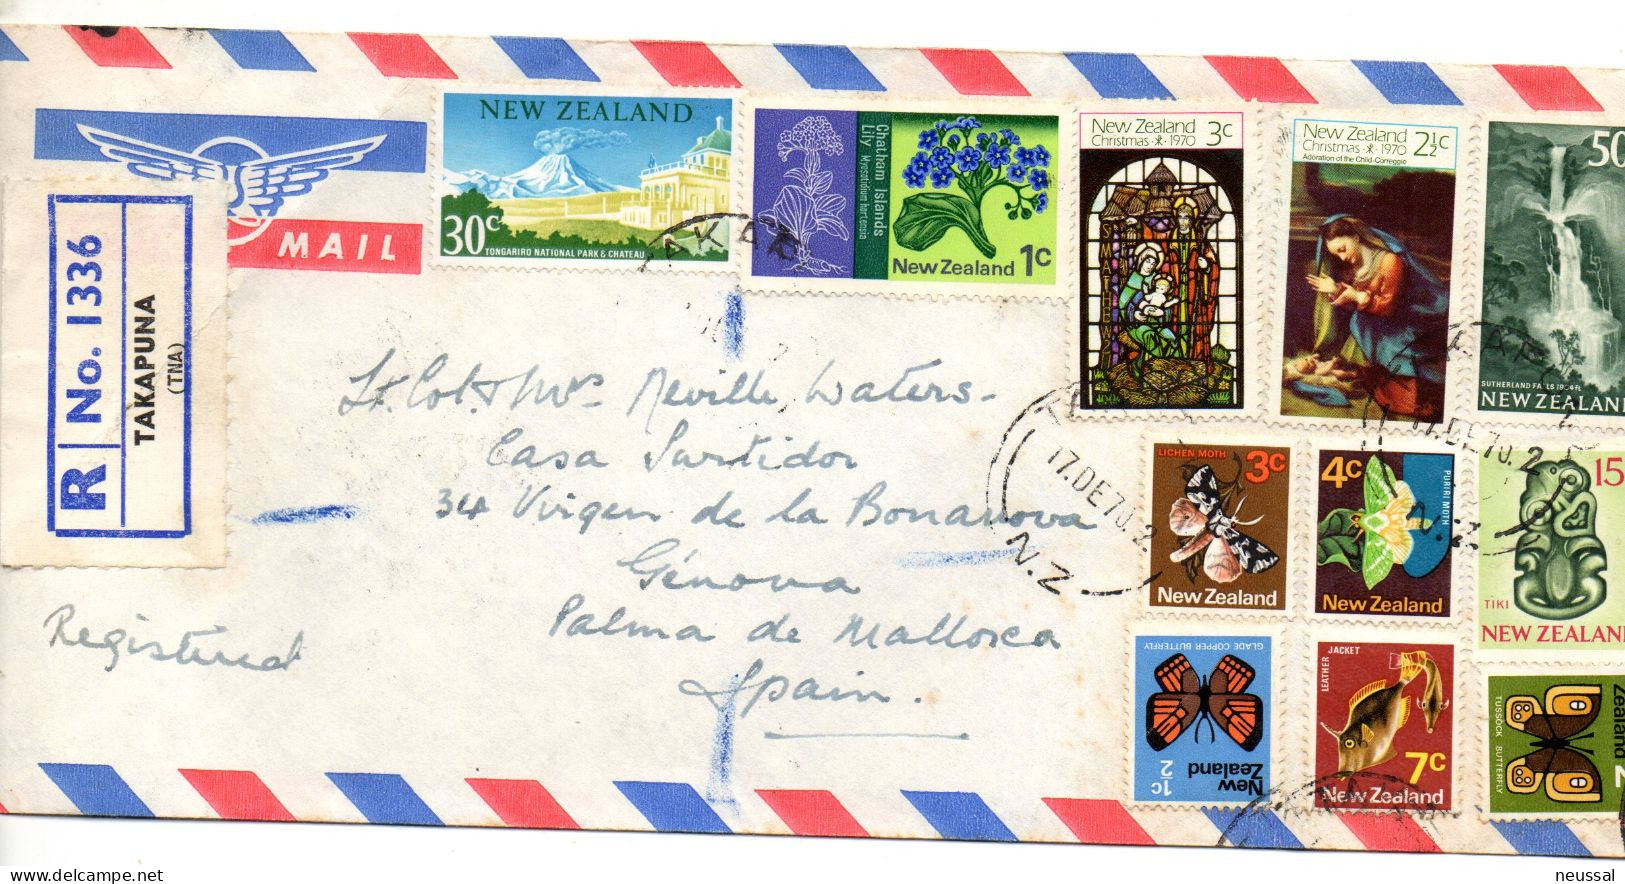 MAIL
R No. 1336
TAKAPUNA
(TNA)
NEW ZEALAND
30c
TONGARIRO NATIONAL PARK & CHATEAU
Chatham Islands
Lily Myosotidium hortensia
New Zealand 1c
New Zealand 3c
Christmas 1970
New Zealand 2½c
Christmas 1970
Adoration of the Child-Correggio
50
SUTHERLAND FALLS 1904 FT
NEW ZEALAND
TAKAP
Lt. Col. & Mrs Neville Waters.
Casa Surtidor
34 Virgen de la Bonanova
Génova
Palma de Mallorca
Spain.
Registered
17.DE70.2
N.Z
17.DE70.2
N.Z
LICHEN MOTH
3c
New Zealand
4c
PURIRI MOTH
New Zealand
15
TIKI
NEW ZEALAND
GLADE COPPER BUTTERFLY
½c
New
Zealand
LEATHER JACKET
7c
New Zealand
Zealand
2
TUSSOCK BUTTERFLY
Delcampe.net
neussal